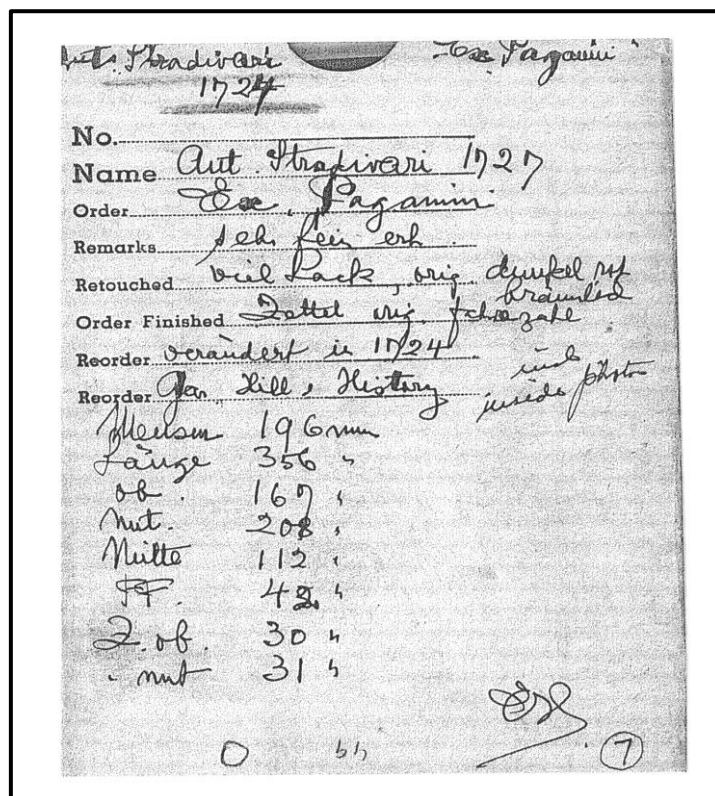 Ant. Stradivari Ex Paganini
1724
No.
Name Ant. Stradivari 1727
Order Ex, Paganini
Remarks sehr fein erh.
Retouched viel Lack, orig dunkel rot
braunled
Order Finished Zettel orig. Jahrezahl
Reorder verändert in 1724
Reorder Hill, History
inside photos
Mensur 196 mm
Länge 356 "
ob. 167 "
unt. 208 "
Mitte 112 "
FF. 42 "
Z. ob. 30 "
" unt 31 "
O
7